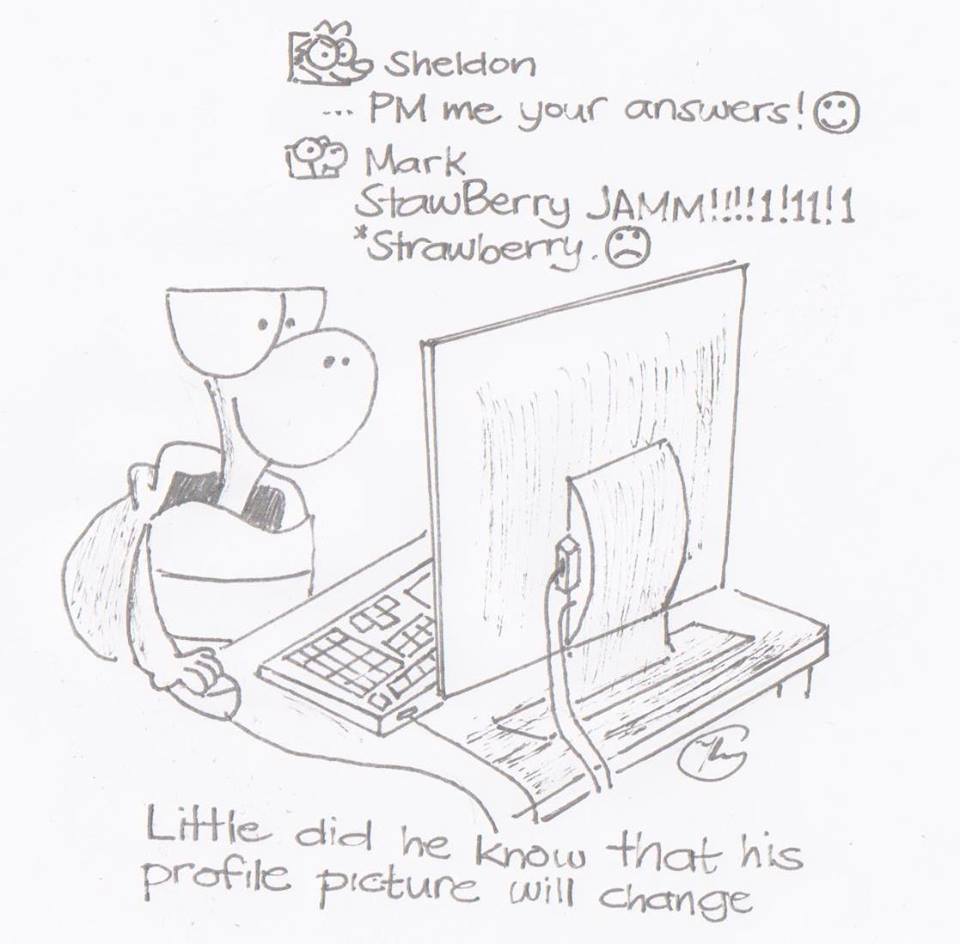 Sheldon
... PM me your answers!
Mark
StawBerry JAMM!!!!1!11!1
*Strawberry.
Little did he know that his
profile picture will change